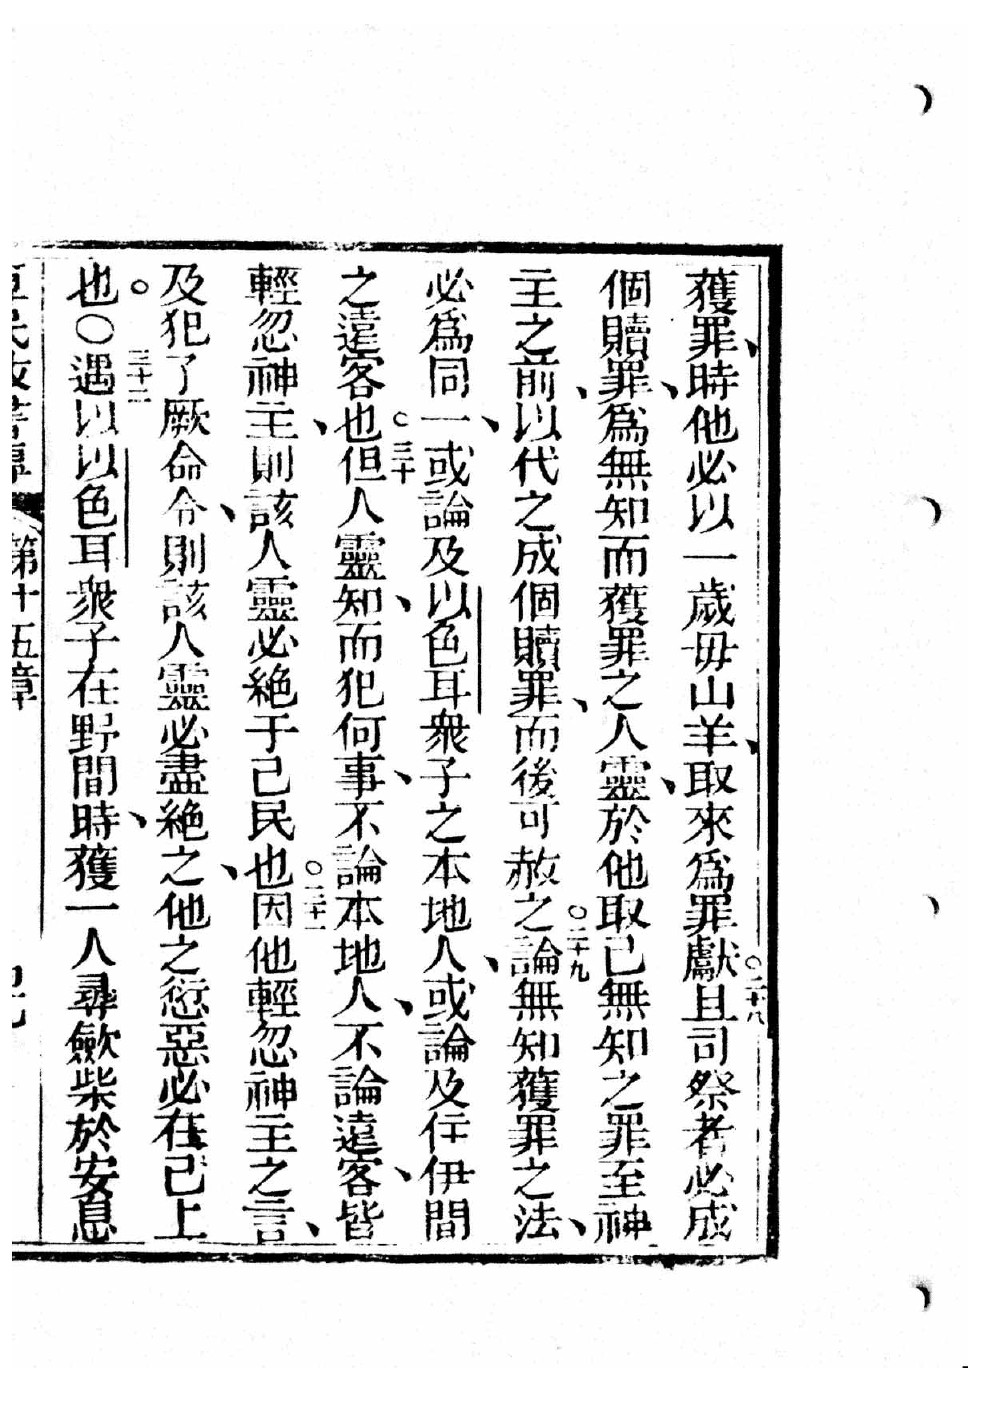 獲罪、時他必以一歲毋山羊、取來爲罪獻。二十八且司祭者必成
個贖罪、爲無知而獲罪之人靈、於他取己無知之罪至神
主之前、以代之成個贖罪、而後可赦之。二十九論無知獲罪之法、
必爲同一、或論及以色耳衆子之本地人、或論及住伊間
之遠客也。三十但人靈知、而犯何事、不論本地人、不論遠客、皆
輕忽神主、則該人靈必絕于己民也。三十一因他輕忽神主之言、
及犯了厥命令、則該人靈必盡絕之、他之愆惡必在己上
也。〇三十二遇以以色耳衆子在野間時、獲一人尋歛柴於安息
第十五章